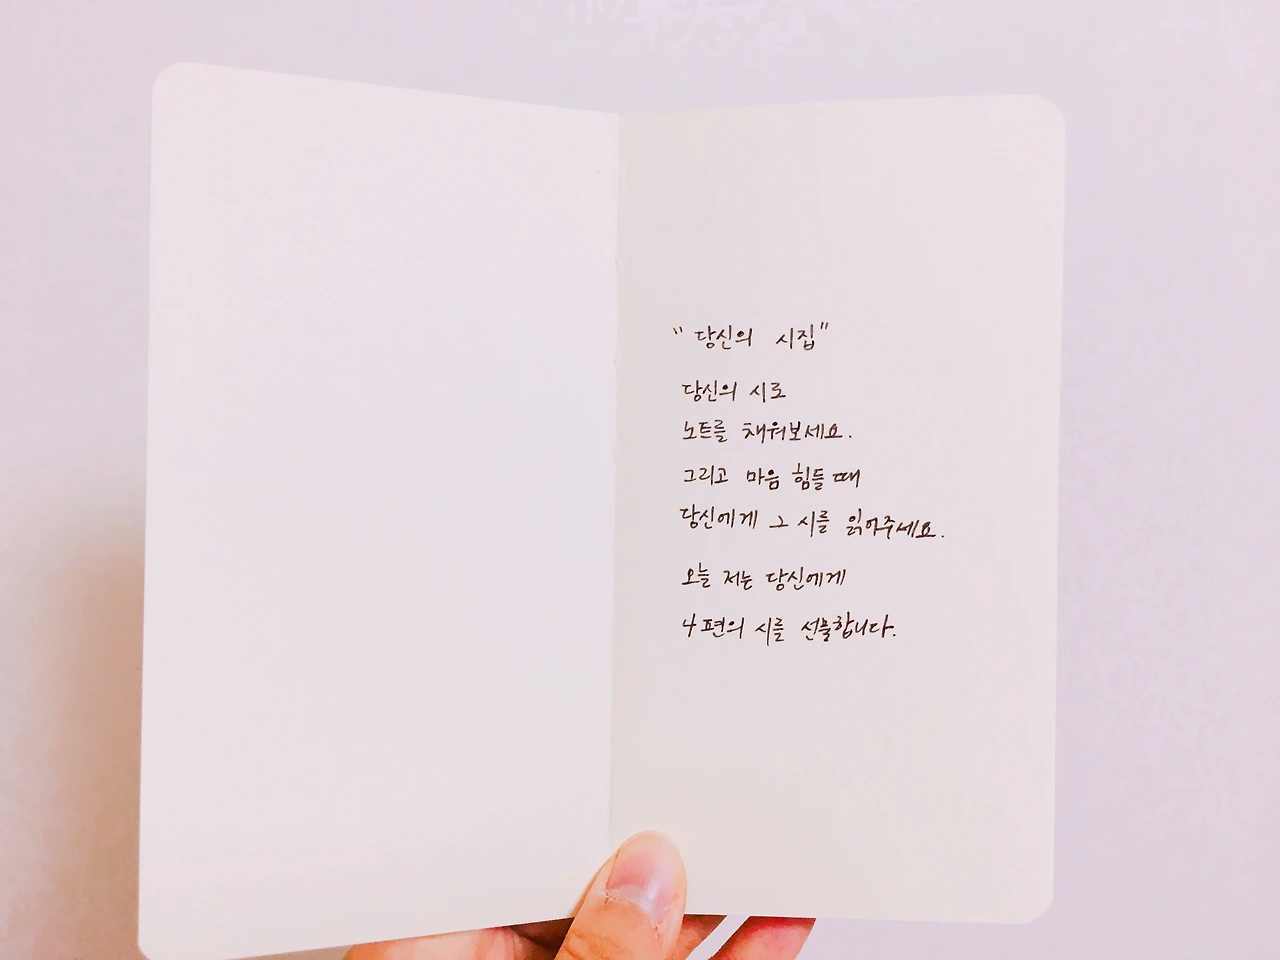 "당신의 시집"
당신의 시로
노트를 채워보세요.
그리고 마음 힘들 때
당신에게 그 시를 읽어주세요.
오늘 저는 당신에게
4편의 시를 선물합니다.